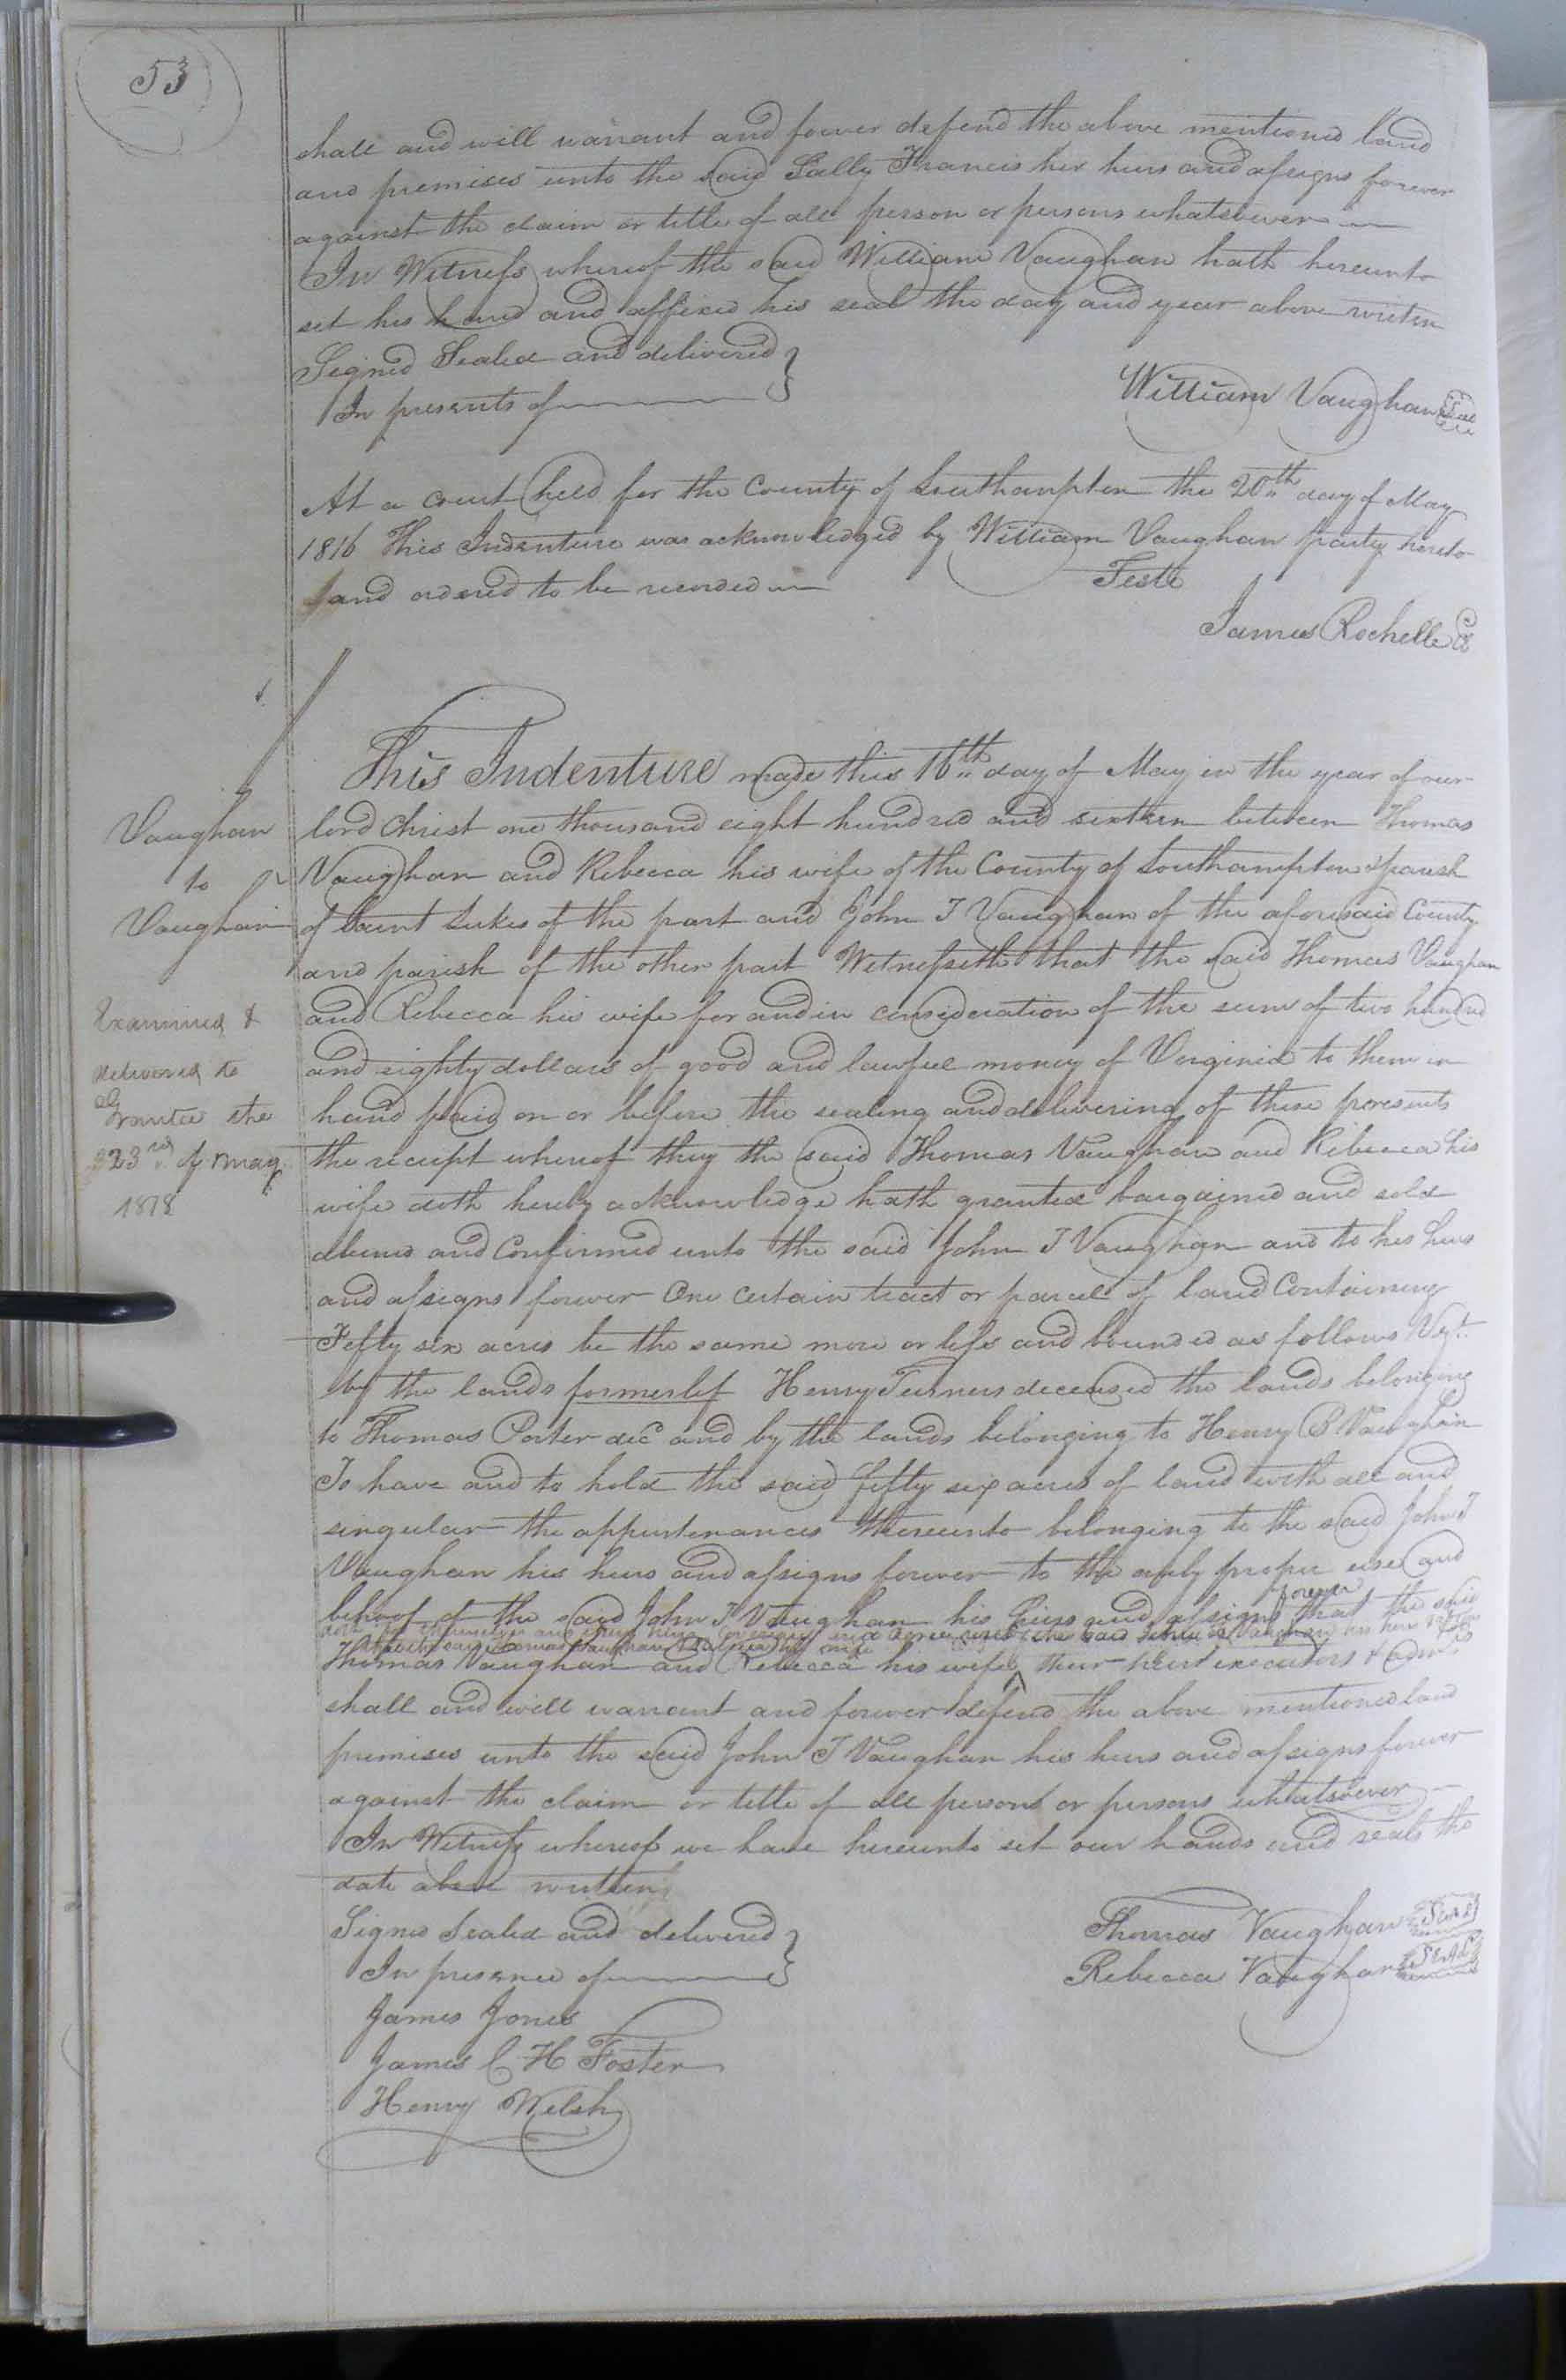 53
shall and will warrant and forever defend the above mentioned land
and premises unto the said Sally Francis her heirs and assigns forever
against the claim or title of all person or persons whatsoever
In Witness whereof the said William Vaughan hath hereunto
set his hand and affixed his seal the day and year above written
Signed Sealed and delivered
In presents of
William Vaughan Seal
At a court held for the County of Southampton the 20th day of May
1816 This Indenture was acknowledged by William Vaughan party hereto
and ordered to be recorded
Teste
James Rochelle
This Indenture made this 16th day of May in the year of our
lord Christ one thousand eight hundred and sixteen between Thomas
Vaughan and Rebecca his wife of the County of Southampton & parish
of Saint Lukes of the part and John T Vaughan of the aforesaid County
and parish of the other part Witnesseth that the said Thomas Vaughan
and Rebecca his wife for and in consideration of the sum of two hundred
and eighty dollars of good and lawful money of Virginia to them in
hand paid on or before the sealing and delivering of these presents
the receipt whereof they the said Thomas Vaughan and Rebecca his
wife doth hereby acknowledge hath granted bargained and sold
aliened and Confirmed unto the said John T Vaughan and to his heirs
and assigns forever One certain tract or parcel of land Containing
Fifty six acres be the same more or less and bounded as follows Vizt.
by the lands formerly Henry Turners deceased the lands belonging
to Thomas Porter decd and by the lands belonging to Henry B Vaughan
To have and to hold the said fifty six acres of land with all and
singular the appurtenances thereunto belonging to the said John T
Vaughan his heirs and assigns forever to the only proper use and
behoof of the said John T Vaughan his heirs and assigns forever that the said
doth for themselves and their heirs covenant and agree with the said John T Vaughan his heirs &
that they the said Thomas Vaughan & Rebecca his wife
Thomas Vaughan and Rebecca his wife their heirs executors & admrs
shall and will warrant and forever defend the above mentioned land
premises unto the said John T Vaughan his heirs and assigns forever
against the claim or title of all person or persons whatsoever
In Witness whereof we have hereunto set our hands and seals the
date above written
Signed Sealed and delivered
In presence of
Thomas Vaughan Seal
Rebecca Vaughan Seal
James Jones
James C H Foster
Henry Welsh
Vaughan
to
Vaughan
Examined &
delivered to
Grantee the
23rd of May
1818